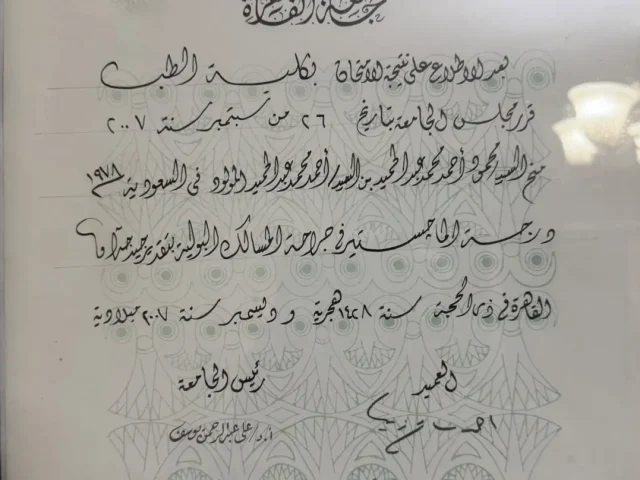 جامعة القاهرة
بعد الاطلاع على نتيجة الامتحان بكلية الطب
قرر مجلس الجامعة بتاريخ ٢٦ من سبتمبر سنة ٢٠٠٧
منح السيد/ محمود أحمد محمد عبد الحميد بن السيد/ أحمد محمد عبد الحميد المولود في السعودية ١٩٧٨
درجة الماجستير في جراحة المسالك البولية بتقدير جيد جدا
القاهرة في ذي الحجة سنة ١٤٢٨ هجرية و ديسمبر سنة ٢٠٠٧ ميلادية
العميد رئيس الجامعة
أ.د/ علي عبد الرحمن يوسف